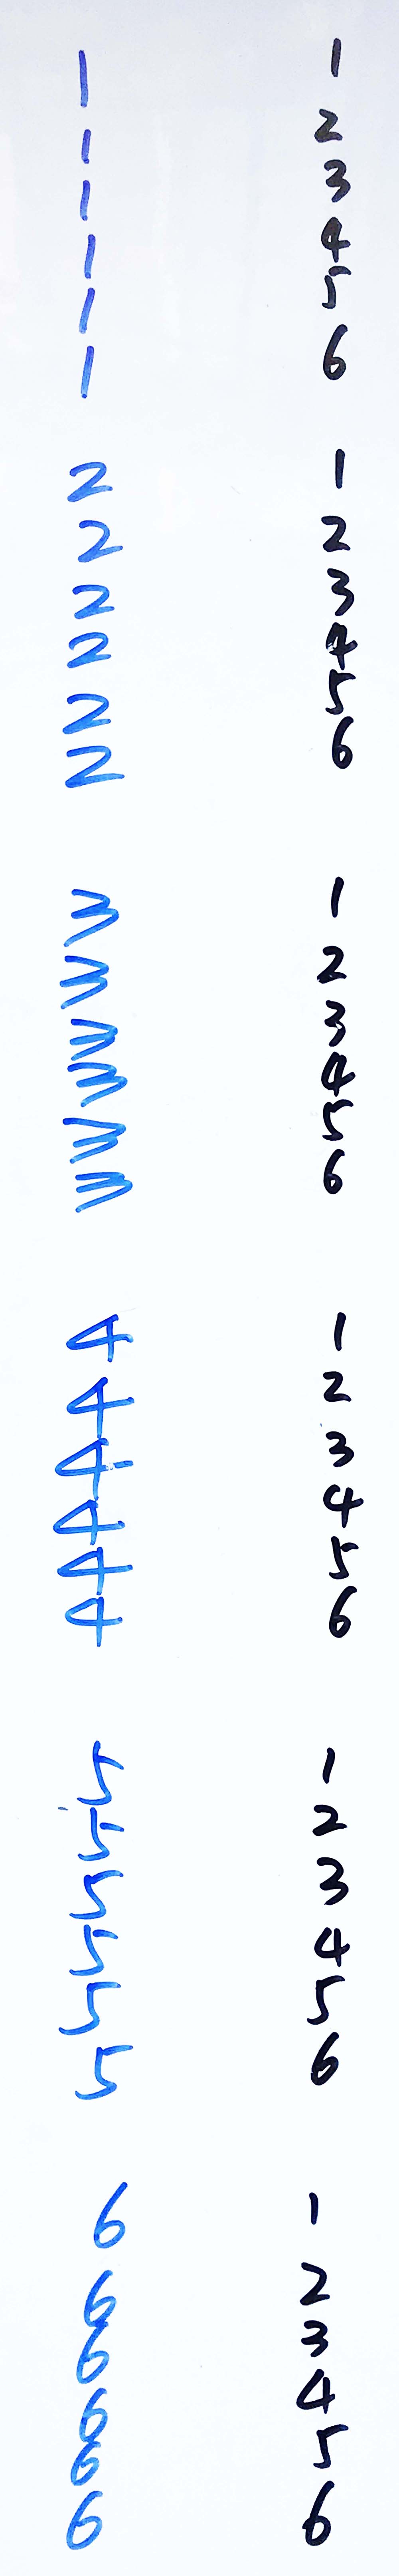 1 1
1 2
1 3
1 4
1 5
1 6
2 1
2 2
2 3
2 4
2 5
2 6
3 1
3 2
3 3
3 4
3 5
3 6
4 1
4 2
4 3
4 4
4 5
4 6
5 1
5 2
5 3
5 4
5 5
5 6
6 1
6 2
6 3
6 4
6 5
6 6